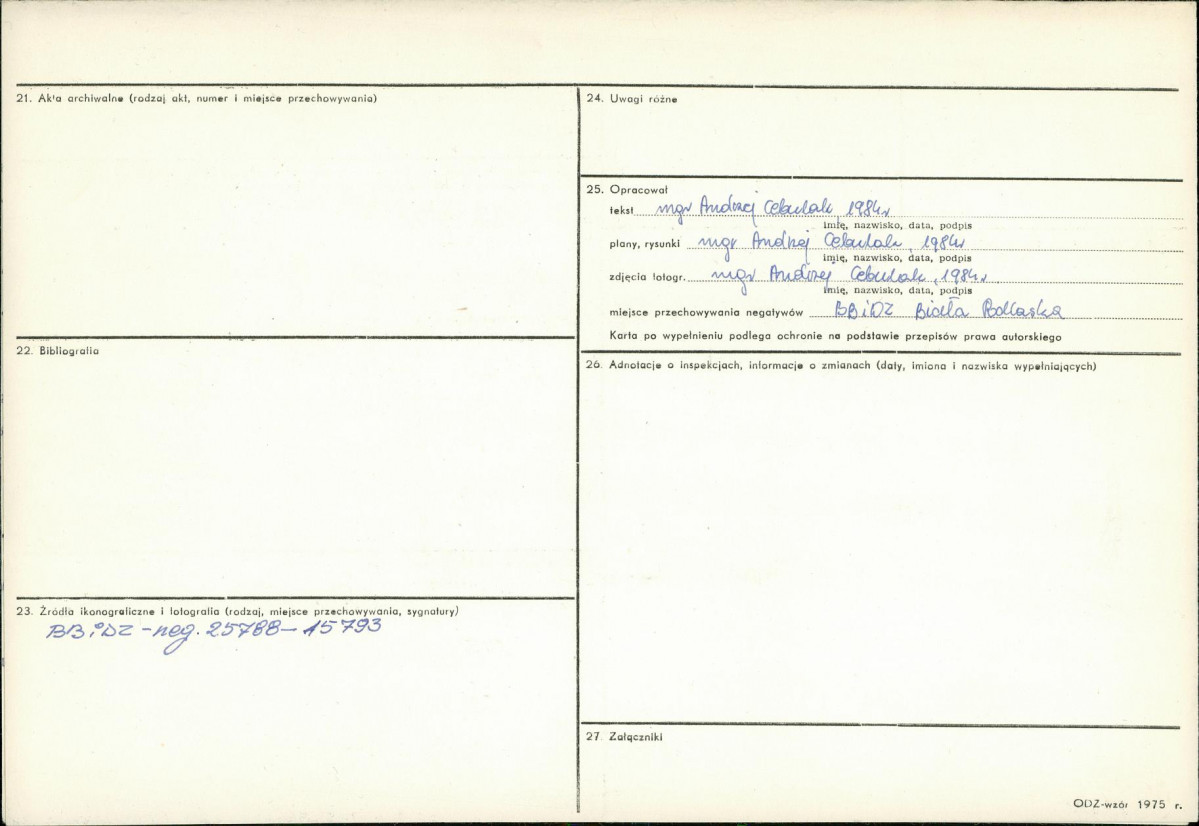 21. Akta archiwalne (rodzaj akt, numer i miejsce przechowywania)
22. Bibliografia
23. Źródła ikonograficzne i fotografia (rodzaj, miejsce przechowywania, sygnatury)
BBiDZ - neg. 25788 - 15793
24. Uwagi różne
25. Opracował
tekst mgr Andrzej Cebulak, 1984r
imię, nazwisko, data, podpis
plany, rysunki mgr Andrzej Cebulak, 1984r
imię, nazwisko, data, podpis
zdjęcia fotogr. mgr Andrzej Cebulak, 1984r
imię, nazwisko, data, podpis
miejsce przechowywania negatywów BBiDZ Biała Podlaska
Karta po wypełnieniu podlega ochronie na podstawie przepisów prawa autorskiego
26. Adnotacje o inspekcjach, informacje o zmianach (daty, imiona i nazwiska wypełniających)
27. Załączniki
ODZ-wzór 1975 r.